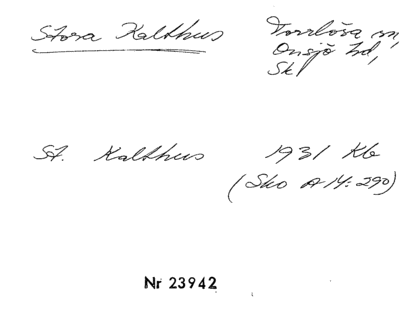 Stora Kalthus Torrlösa sn,
Onsjö hd,
Sk
St. Kalthus 1931 Kb
(Sko A 14:290)
Nr 23942